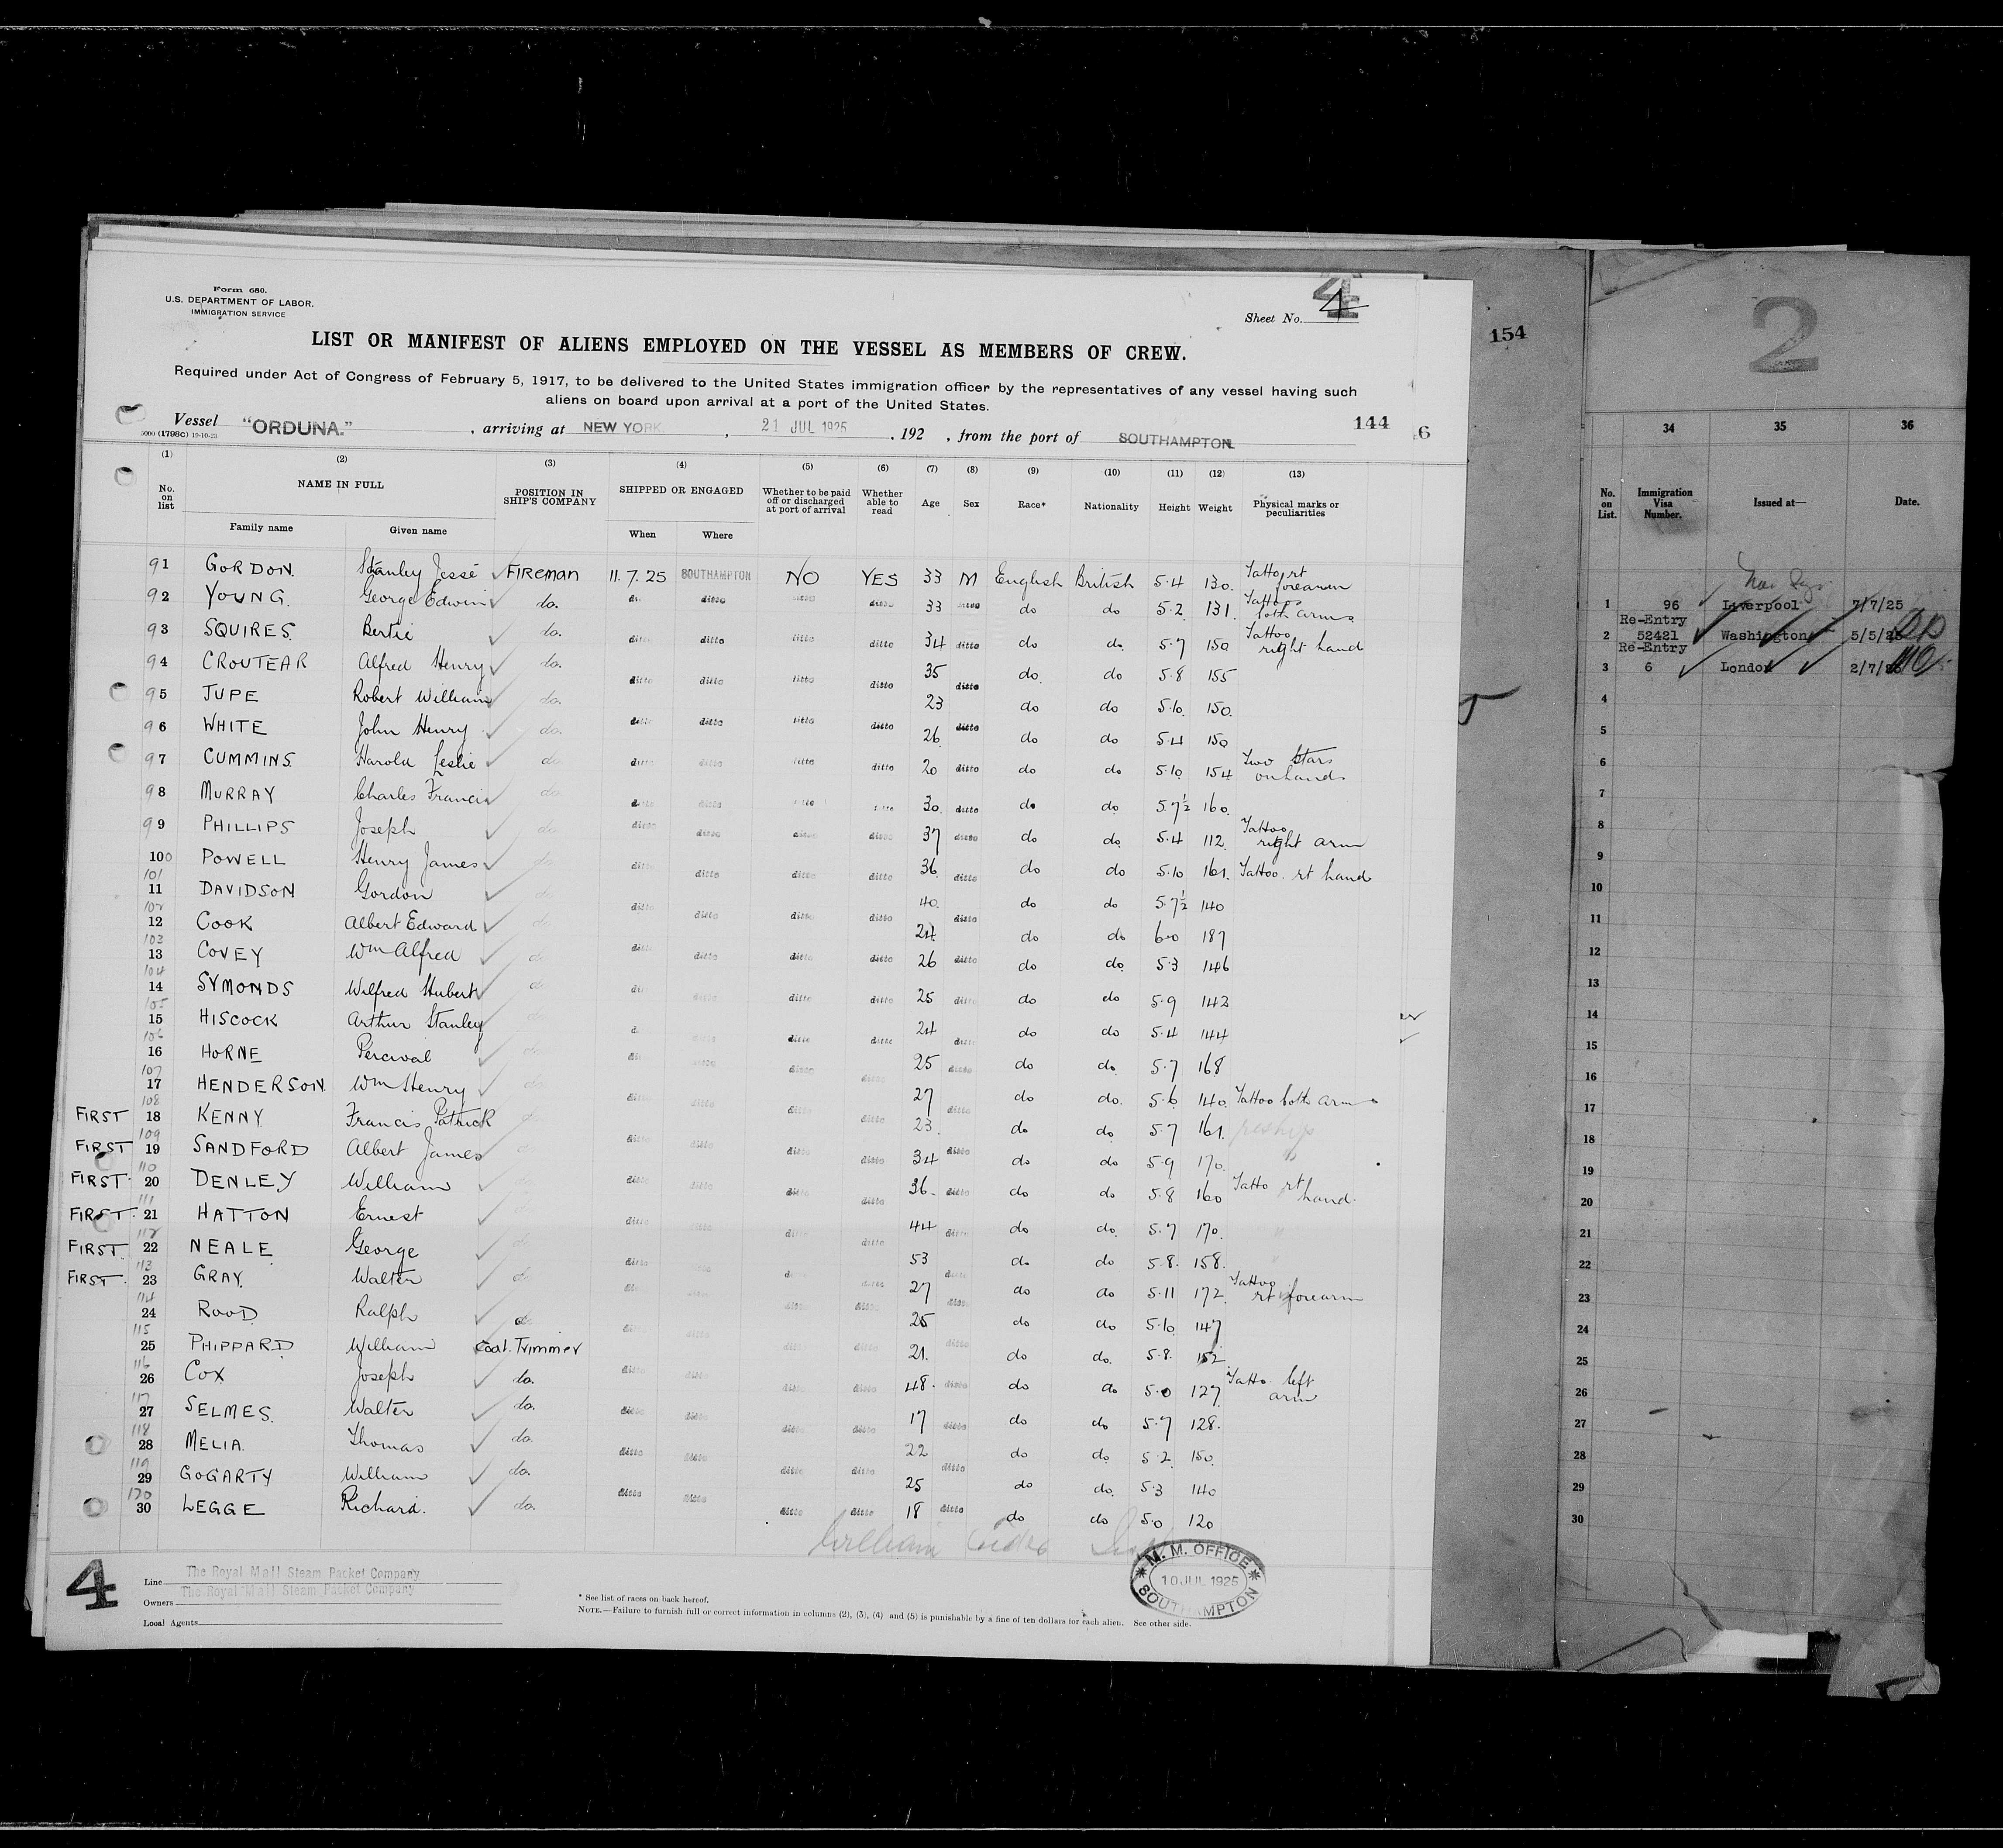 Form 680.
U.S. DEPARTMENT OF LABOR.
IMMIGRATION SERVICE
4
Sheet No. 4
LIST OR MANIFEST OF ALIENS EMPLOYED ON THE VESSEL AS MEMBERS OF CREW.
Required under Act of Congress of February 5, 1917, to be delivered to the United States immigration officer by the representatives of any vessel having such
aliens on board upon arrival at a port of the United States.
Vessel "ORDUNA." , arriving at NEW YORK , 21 JUL 1925 , 192 , from the port of SOUTHAMPTON 144 6
5000 (1798C) 19-10-23
(1) (2) (3) (4) (5) (6) (7) (8) (9) (10) (11) (12) (13)
No. on list NAME IN FULL Family name Given name POSITION IN SHIP'S COMPANY SHIPPED OR ENGAGED When Where Whether to be paid off or discharged at port of arrival Whether able to read Age Sex Race* Nationality Height Weight Physical marks or peculiarities
91 GORDON. Stanley Jesse FIREMAN 11.7.25 SOUTHAMPTON NO YES 33 M English British 5.4 130. Tatto rt forearm
92 YOUNG. George Edwin do. ditto ditto ditto 33 ditto do do 5.2. 131. Tattoo both arms
93 SQUIRES. Bertie do. ditto ditto ditto ditto 34 ditto do do. 5.7 150 Tattoo right hand
94 CROUTEAR Alfred Henry do. ditto ditto ditto ditto 35 ditto do. do 5.8 155
95 JUPE Robert William do. ditto ditto ditto ditto 23 ditto do do 5.10. 150.
96 WHITE John Henry do. ditto ditto ditto ditto 26 ditto do do 5.4 150
97 CUMMINS. Harold Leslie do ditto ditto ditto ditto 20 ditto do do 5.10 154 Two Stars on hands
98 MURRAY Charles Francis do ditto ditto ditto ditto 30. ditto do do 5.7½ 160.
99 PHILLIPS Joseph do ditto ditto ditto ditto 37 ditto do do 5.4 112. Tattoo right arm
100 POWELL Henry James do ditto ditto ditto ditto 36. ditto do do 5.10 161. Tattoo. rt hand
101 11 DAVIDSON Gordon do ditto ditto ditto ditto 40. ditto do do 5.7½ 140
102 12 COOK Albert Edward do ditto ditto ditto ditto 24 ditto do do 6.0 187
103 13 COVEY Wm Alfred do ditto ditto ditto ditto 26 ditto do do. 5.3 146
104 14 SYMONDS Wilfred Hubert do ditto ditto ditto ditto 25 ditto do do 5.9 142
105 15 HISCOCK Arthur Stanley do ditto ditto ditto 24 ditto do do 5.4 144
106 16 HORNE Percival do ditto ditto ditto ditto 25 ditto do do. 5.7 168
107 17 HENDERSON. Wm Henry do ditto ditto ditto ditto 27 ditto do do. 5.6 140. Tattoo both arms
FIRST 108 18 KENNY Francis Patrick do ditto ditto ditto ditto 23. ditto do do. 5.7 161.
FIRST 109 19 SANDFORD Albert James ditto ditto ditto ditto 34 ditto do do 5.9 170.
FIRST. 110 20 DENLEY William ditto ditto ditto ditto 36. ditto do do 5.8 160 Tatto rt hand.
FIRST. 111 21 HATTON Ernest ditto ditto ditto ditto 44 ditto do do. 5.7 170.
FIRST. 112 22 NEALE George ditto ditto ditto ditto 53 ditto do do 5.8. 158.
FIRST. 113 23 GRAY. Walter do ditto ditto ditto ditto 27 ditto do do 5.11 172. Tattoo rt forearm
114 24 ROOD Ralph do ditto ditto ditto ditto 25 ditto do do 5.10. 147
115 25 PHIPPARD William Coal. Trimmer ditto ditto ditto ditto 21. ditto do do. 5.8. 152
116 26 COX Joseph do. ditto ditto ditto ditto 48. ditto do do 5.0 127. Tatto. left arm
117 27 SELMES. Walter do. ditto ditto ditto ditto 17 ditto do do 5.7 128.
118 28 MELIA. Thomas do. ditto ditto ditto ditto 22 ditto do do. 5.2. 150.
119 29 GOGARTY William do. ditto ditto ditto ditto 25 ditto do do. 5.3 140
120 30 LEGGE Richard. do. ditto ditto ditto ditto 18 ditto do do 5.0 120
William
4
Line The Royal Mail Steam Packet Company
Owners The Royal Mail Steam Packet Company
Local Agents
* See list of races on back hereof.
NOTE.—Failure to furnish full or correct information in columns (2), (3), (4) and (5) is punishable by a fine of ten dollars for each alien. See other side.
M. M. OFFICE
10 JUL 1925
SOUTHAMPTON
154
2
34 35 36
No. on List. Immigration Visa Number. Issued at— Date.
1 96 Liverpool 7/7/25
Re-Entry
2 52421 Washington 5/5/25
Re-Entry
3 6 London 2/7/25
4
5
6
7
8
9
10
11
12
13
14
15
16
17
18
19
20
21
22
23
24
25
26
27
28
29
30